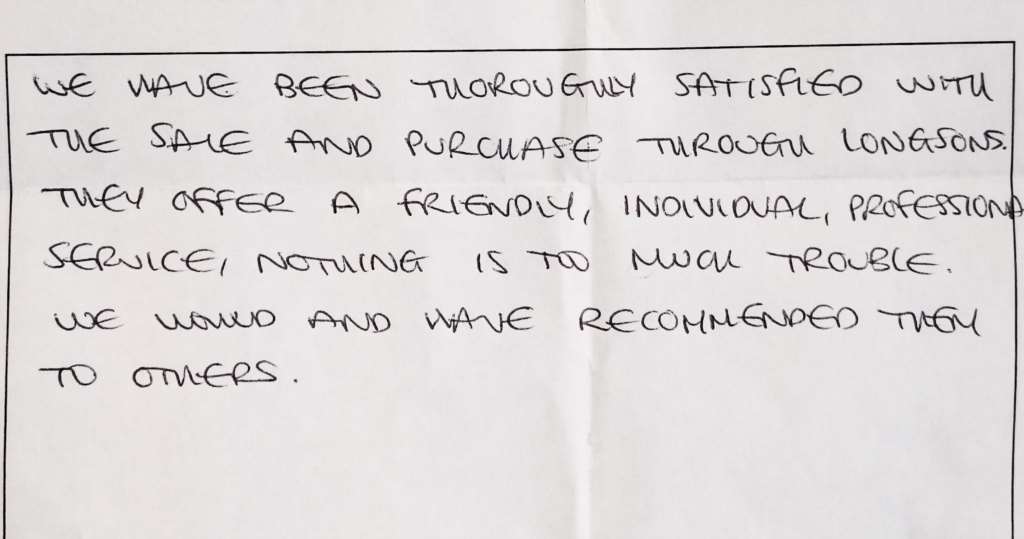 WE HAVE BEEN THOROUGHLY SATISFIED WITH
THE SALE AND PURCHASE THROUGH LONGSONS.
THEY OFFER A FRIENDLY, INDIVIDUAL, PROFESSIONA
SERVICE, NOTHING IS TOO MUCH TROUBLE.
WE WOULD AND HAVE RECOMMENDED THEM
TO OTHERS.